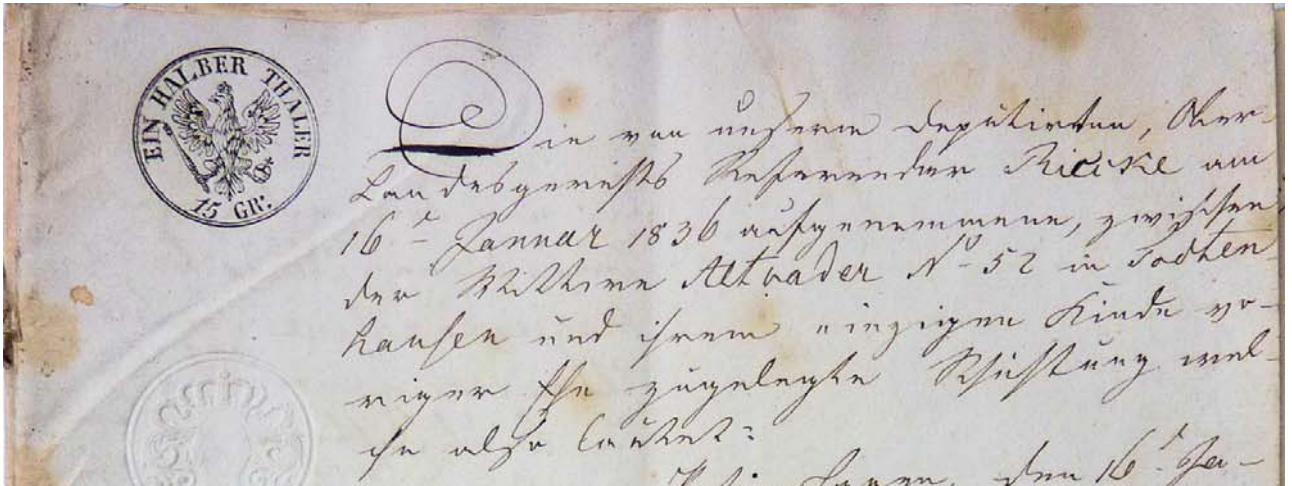 EIN HALBER THALER
15 GR:
Die von unserm Deputirten, Ober-
Landesgerichts Referendar Riecke am
16t Januar 1836 aufgenommene, zwischen
der Wittwe Altvader No 52 in Todten
hausen und ihrem einzigen Kinde vo-
riger Ehe zugelegte Schichtung wel-
che also lautet:
den 16t Ja-